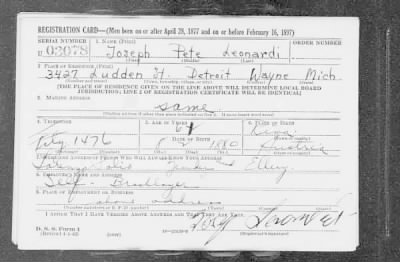 REGISTRATION CARD—(Men born on or after April 28, 1877 and on or before February 16, 1897)
SERIAL NUMBER 1. NAME (Print) ORDER NUMBER
U 03078 Joseph Pete Leonardi
2. PLACE OF RESIDENCE (Print)
3427 Ludden St. Detroit Wayne Mich.
[THE PLACE OF RESIDENCE GIVEN ON THE LINE ABOVE WILL DETERMINE LOCAL BOARD
JURISDICTION; LINE 2 OF REGISTRATION CERTIFICATE WILL BE IDENTICAL]
3. MAILING ADDRESS
same
4. TELEPHONE 5. AGE IN YEARS 6. PLACE OF BIRTH
DATE OF BIRTH
1476 2 1880 Austria
7. NAME AND ADDRESS OF PERSON WHO WILL ALWAYS KNOW YOUR ADDRESS
Ellery
8. EMPLOYER'S NAME AND ADDRESS
Self-
9. PLACE OF EMPLOYMENT OR BUSINESS
above address
I AFFIRM THAT I HAVE VERIFIED ABOVE ANSWERS AND THAT THEY ARE TRUE.
D. S. S. Form 1
(Revised 4-1-42) (over) (Registrant's signature)